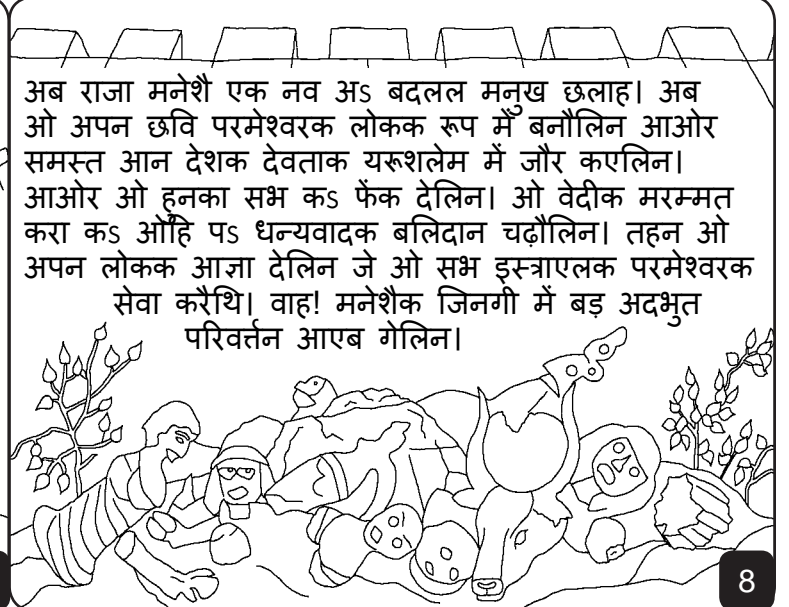 अब राजा मनेशै एक नव अS बदलल मनुख छलाह। अब
ओ अपन छवि परमेश्वरक लोकक रूप में बनौलिन आओर
समस्त आन देशक देवताक यरूशलेम में जौर कएलिन।
आओर ओ हुनका सभ कS फेंक देलिन। ओ वेदीक मरम्मत
करा कS ओहि पS धन्यवादक बलिदान चढ़ौलिन। तहन ओ
अपन लोकक आज्ञा देलिन जे ओ सभ इस्त्राएलक परमेश्वरक
सेवा करैथि। वाह! मनेशैक जिनगी में बड़ अदभुत
परिवर्त्तन आएब गेलिन।
8